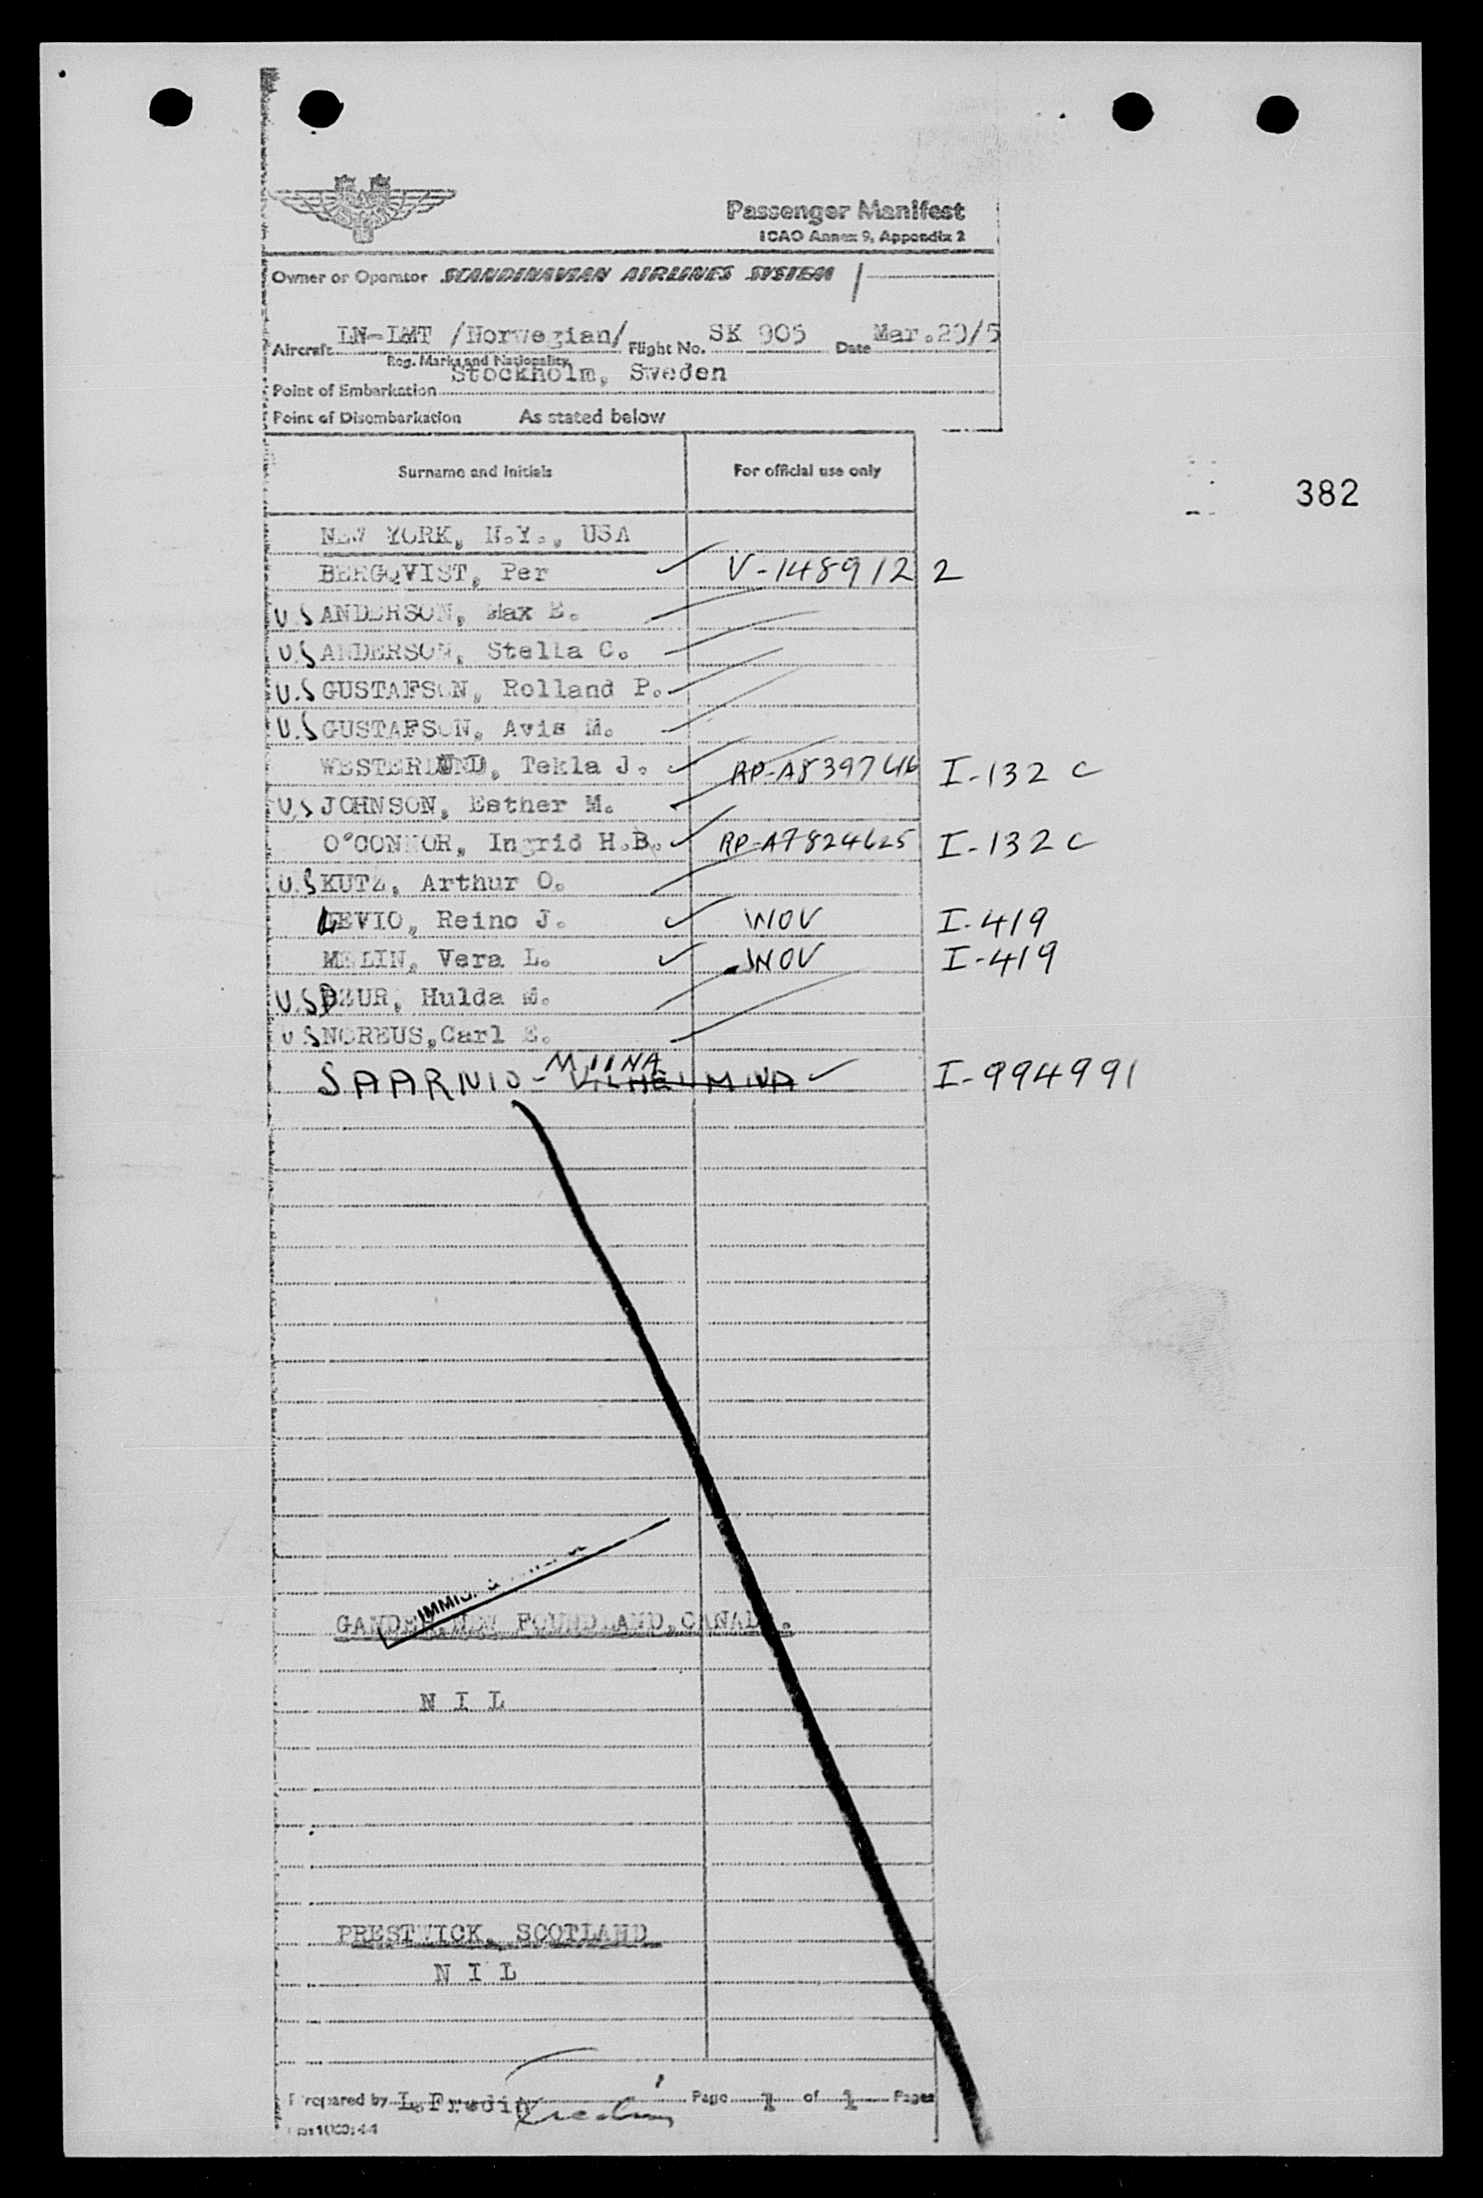 Passenger Manifest
ICAO Annex 9, Appendix 2
Owner or Operator SCANDINAVIAN AIRLINES SYSTEM
Aircraft LN-LMT /Norwegian/ Flight No. SK 905 Date Mar.29/5
Reg. Marks and Nationality
Point of Embarkation Stockholm, Sweden
Point of Disembarkation As stated below
Surname and Initials For official use only
382
NEW YORK, N.Y., USA
BERGQVIST, Per ✓ V-1489122
U.S ANDERSON, Max E.
U.S ANDERSON, Stella C.
U.S GUSTAFSON, Rolland P.
U.S GUSTAFSON, Avis M.
WESTERLUND, Tekla J. ✓ RP-A8397416 I-132 C
U.S JOHNSON, Esther M.
O'CONNOR, Ingrid H.B. ✓ RP-A7824625 I-132 C
U.S KUTZ, Arthur O.
LEVIO, Reino J. ✓ WOV I-419
MELIN, Vera L. ✓ WOV I-419
U.S DZUR, Hulda M.
U.S NOREUS, Carl E.
MIINA
SAARNIO - VILHELMINA ✓ I-994991
IMMIG.
GANDER, NEW FOUNDLAND, CANADA.
N I L
PRESTWICK, SCOTLAND
N I L
Prepared by L. Fredin Page 1 of 1 Pages